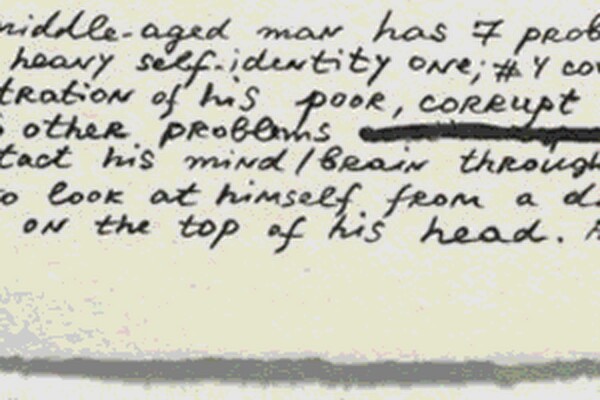 middle-aged man has 7 prob
heavy self-identity one; #4 co
tration of his poor, corrupt
other problems
tact his mind/brain through
to look at himself from a di
on the top of his head.